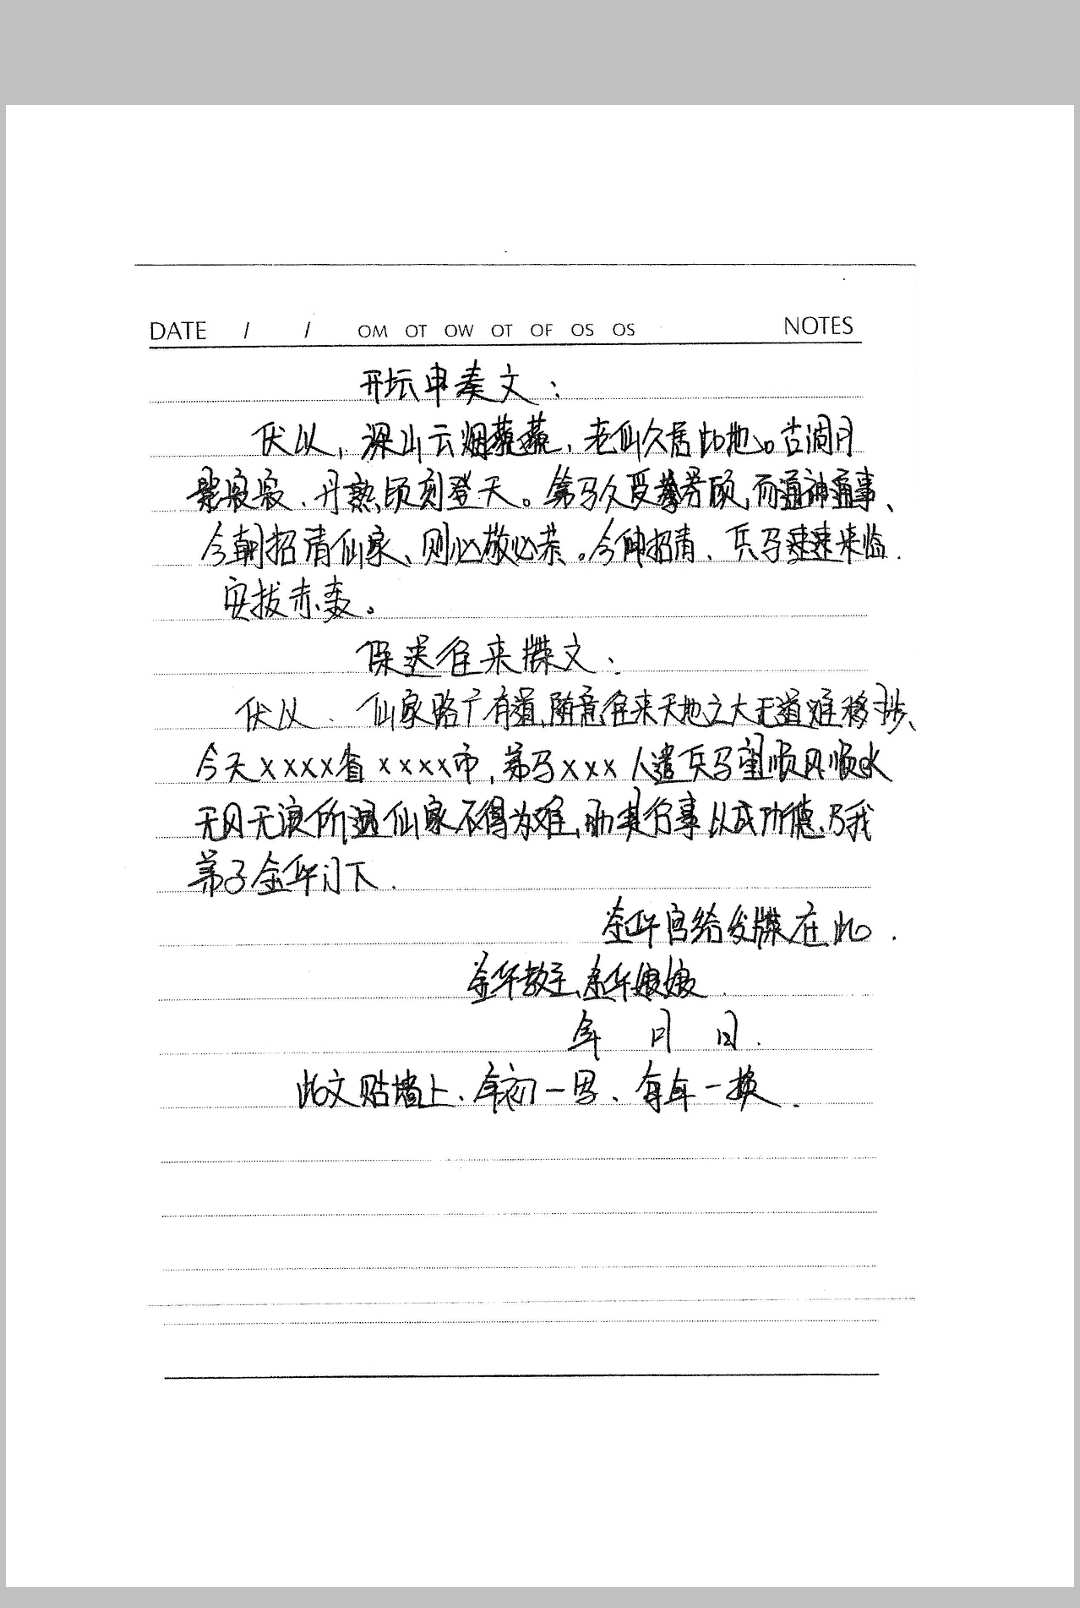 DATE / / OM OT OW OT OF OS OS NOTES
开坛申奏文：
伏以，深山云烟蔼蔼，老仙久居此地。古洞月
影寂寂、丹熟顷刻登天。弟马久受眷顾，而通神通事、
今朝招请仙家、则必敬必恭。今伸招请、兵马速速来临.
实拔赤轰。
保送往来牒文：
伏以、仙家路广有道，随意往来天地之大无道难移步、
今天xxxx省xxxx市，弟马xxx人遣兵马望顺风顺水
无风无浪所遇仙家不得为难，助其行事以成功德.乃我
弟子金华门下.
金华宫给发牒在此.
金华教主，金华娘娘.
年 月 日.
此文贴墙上、年初一男、每年一换.